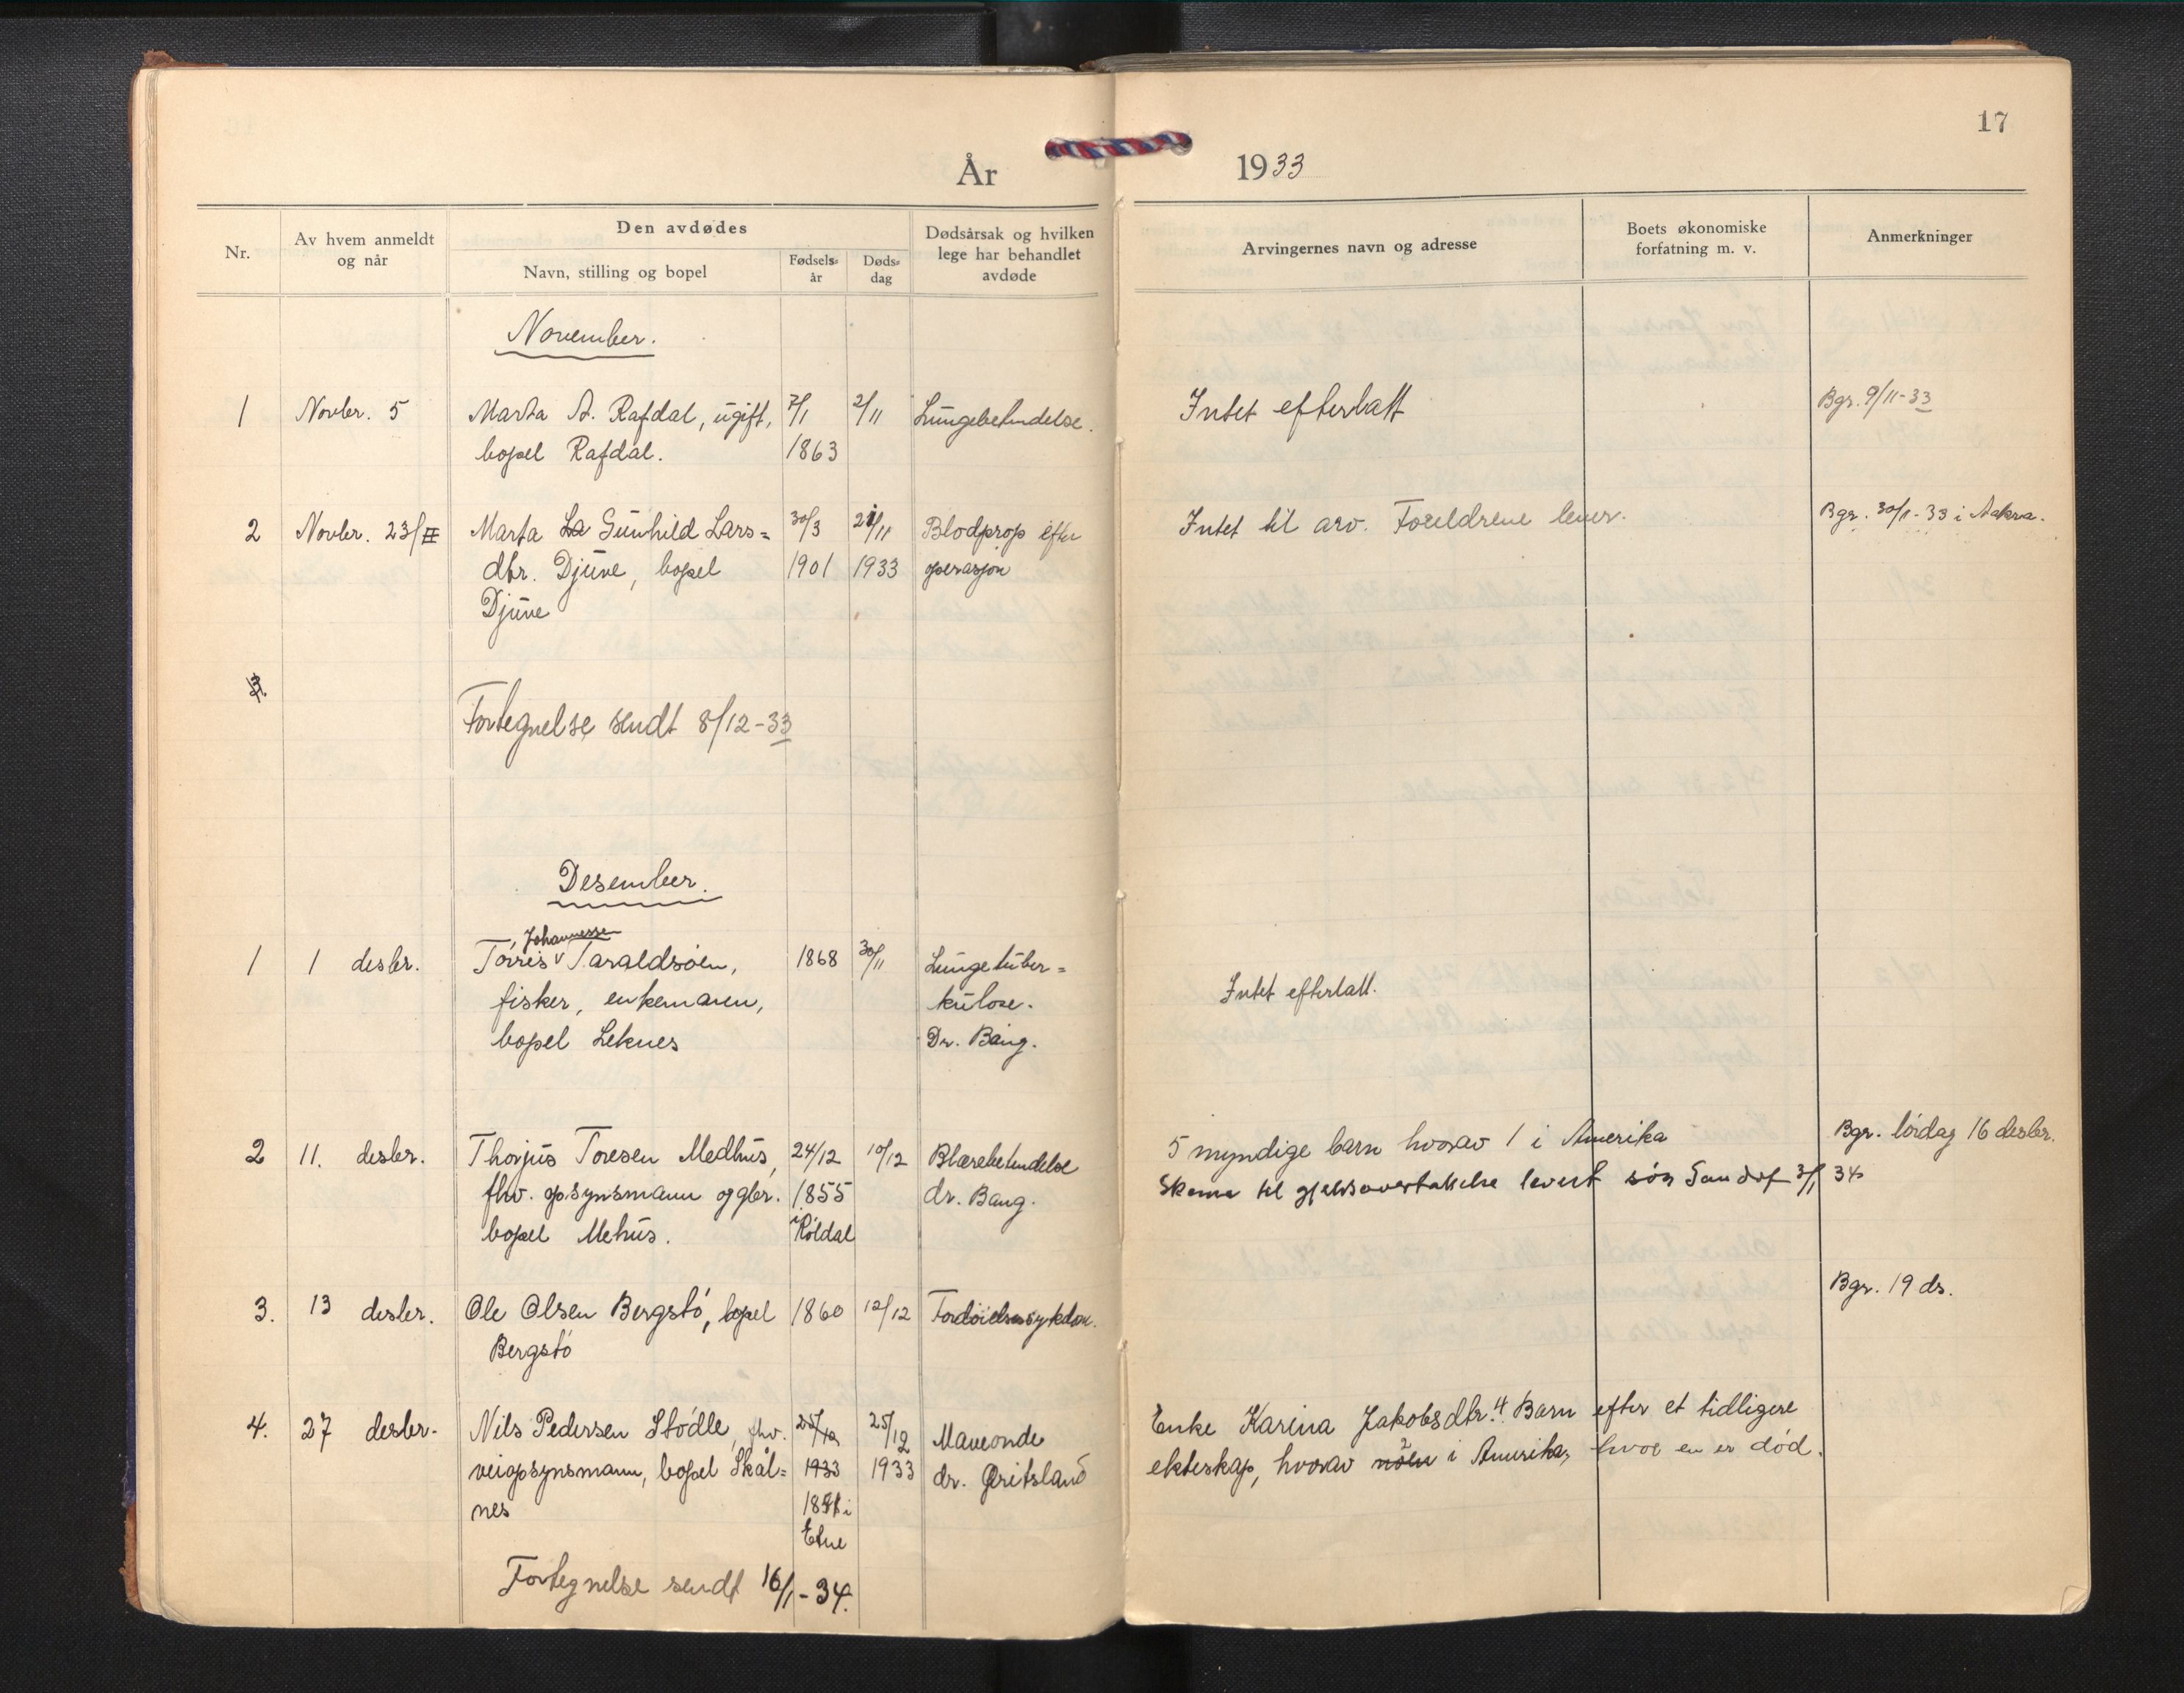 17
År 1933
Nr.
Av hvem anmeldt
og når
Den avdødes
Navn, stilling og bopel
Fødsels-
år
Døds-
dag
Dødsårsak og hvilken
lege har behandlet
avdøde
Arvingernes navn og adresse
Boets økonomiske
forfatning m. v.
Anmerkninger
November.
1 Novbr. 5 Marta A. Rafdal, ugift, 7/1 2/11 Lungebetendelse. Intet efterlatt Bgr. 9/11-33
bopel Rafdal. 1863
2 Novbr. 23/II Marta La Gunhild Lars= 30/3 21/11 Blodprop efter Intet til arv. Foreldrene lever. Bgr. 30/11-33 i Aakra.
dtr. Djuve, bopel 1901 1933 operasjon
Djuve
3.
Fortegnelse sendt 8/12-33
Desember.
Johannesse
1 1 desbr. Torris Taraldsøen, 1868 30/11 Lungetuber=
fisker, enkemann, kulose. Intet efterlatt.
bopel Leknes Dr. Bang.
2 11. desbr. Thorjus Toresen Medhus, 24/12 10/12 Blærebetendelse 5 myndige barn hvorav 1 i Amerika Bgr. lørdag 16 desbr.
fhv. opsynsmann og gbr. 1855 dr. Bang. Skema til gjeldsovertakelse levert søn 3/1 34
bopel Mehus. i Røldal
3. 13 desbr. Ole Olsen Bergstø, bopel 1860 12/12 Fordøielsessykdom. Bgr. 19 ds.
Bergstø
4. 27 desbr. Nils Pedersen Stødle, fhv. 25/12 25/12 Maveonde Enke Karina Jakobsdtr. 4 Barn efter et tidligere
veiopsynsmann, bopel Skål= 1933 1933 dr. Gritsland ekteskap, hvorav noen 2 i Amerika, hvor en er død.
nes i
Etne
Fortegnelse sendt 16/1-34.